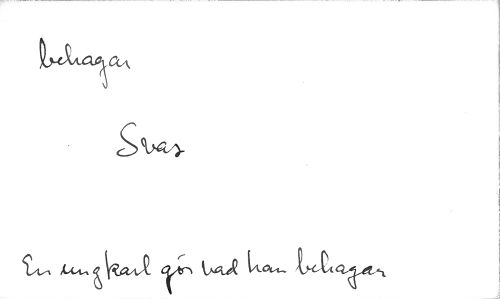 behagar
Svar
En ungkarl gör vad han behagar